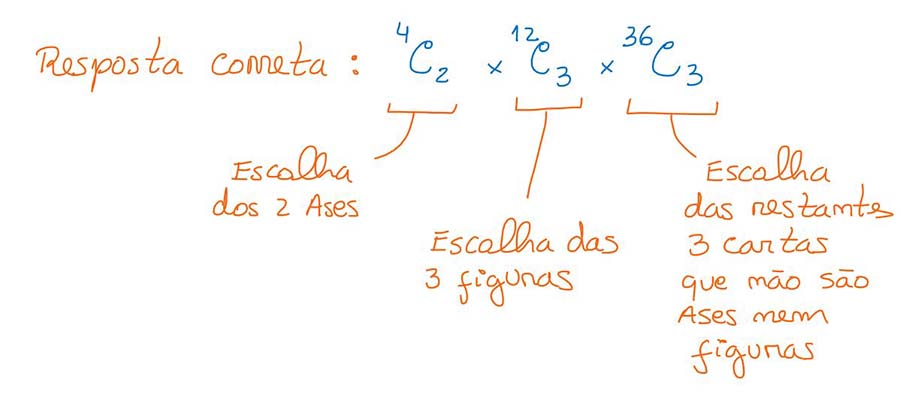 Resposta correta: ⁴C₂ × ¹²C₃ × ³⁶C₃
Escolha
dos 2 Ases
Escolha das
3 figuras
Escolha
das restantes
3 cartas
que não são
Ases nem
figuras